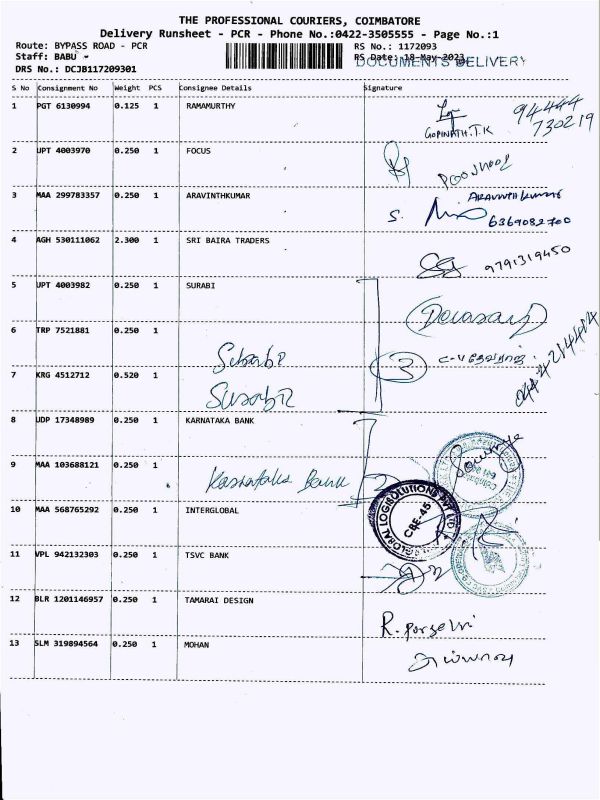 THE PROFESSIONAL COURIERS, COIMBATORE
Delivery Runsheet - PCR - Phone No.:0422-3505555 - Page No.:1
Route: BYPASS ROAD - PCR RS No.: 1172093
Staff: BABU - RS Date: 18-May-2023
DOCUMENTS DELIVERY
DRS No.: DCJB117209301
S No Consignment No Weight PCS Consignee Details Signature
1 PGT 6130994 0.125 1 RAMAMURTHY
94444
730219
GOPINATH.T.K
2 UPT 4003970 0.250 1 FOCUS
3 MAA 299783357 0.250 1 ARAVINTHKUMAR
ARAVINTH KUMAR
S.
6369082700
4 AGH 530111062 2.300 1 SRI BAIRA TRADERS
9791319450
5 UPT 4003982 0.250 1 SURABI
6 TRP 7521881 0.250 1
Surabi
3
7 KRG 4512712 0.520 1
Surabi
8 UDP 17348989 0.250 1 KARNATAKA BANK
9 MAA 103688121 0.250 1
Karnataka Bank
10 MAA 568765292 0.250 1 INTERGLOBAL
GLOBAL LOGISOLUTIONS PVT LTD
CBE-45
11 VPL 942132303 0.250 1 TSVC BANK
12 BLR 1201146957 0.250 1 TAMARAI DESIGN
13 SLM 319894564 0.250 1 MOHAN